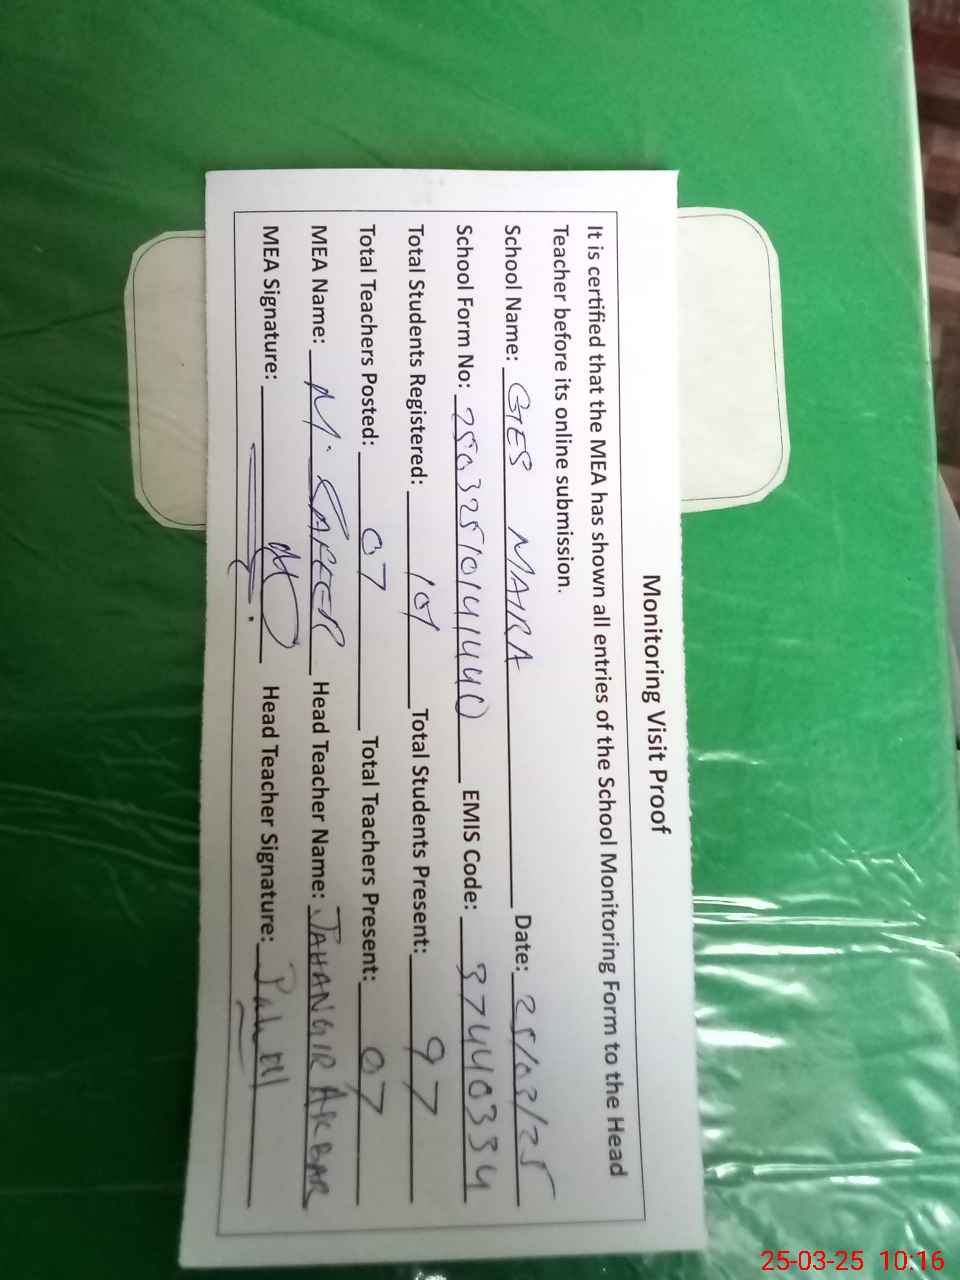 Monitoring Visit Proof
It is certified that the MEA has shown all entries of the School Monitoring Form to the Head
Teacher before its online submission.
School Name: GES MAIRA Date: 25/03/25
School Form No: 25032510141440 EMIS Code: 37440334
Total Students Registered: 101 Total Students Present: 97
Total Teachers Posted: 07 Total Teachers Present: 07
MEA Name: M. Head Teacher Name: JAHANGIR AKBAR
MEA Signature: Head Teacher Signature:
25-03-25 10:16